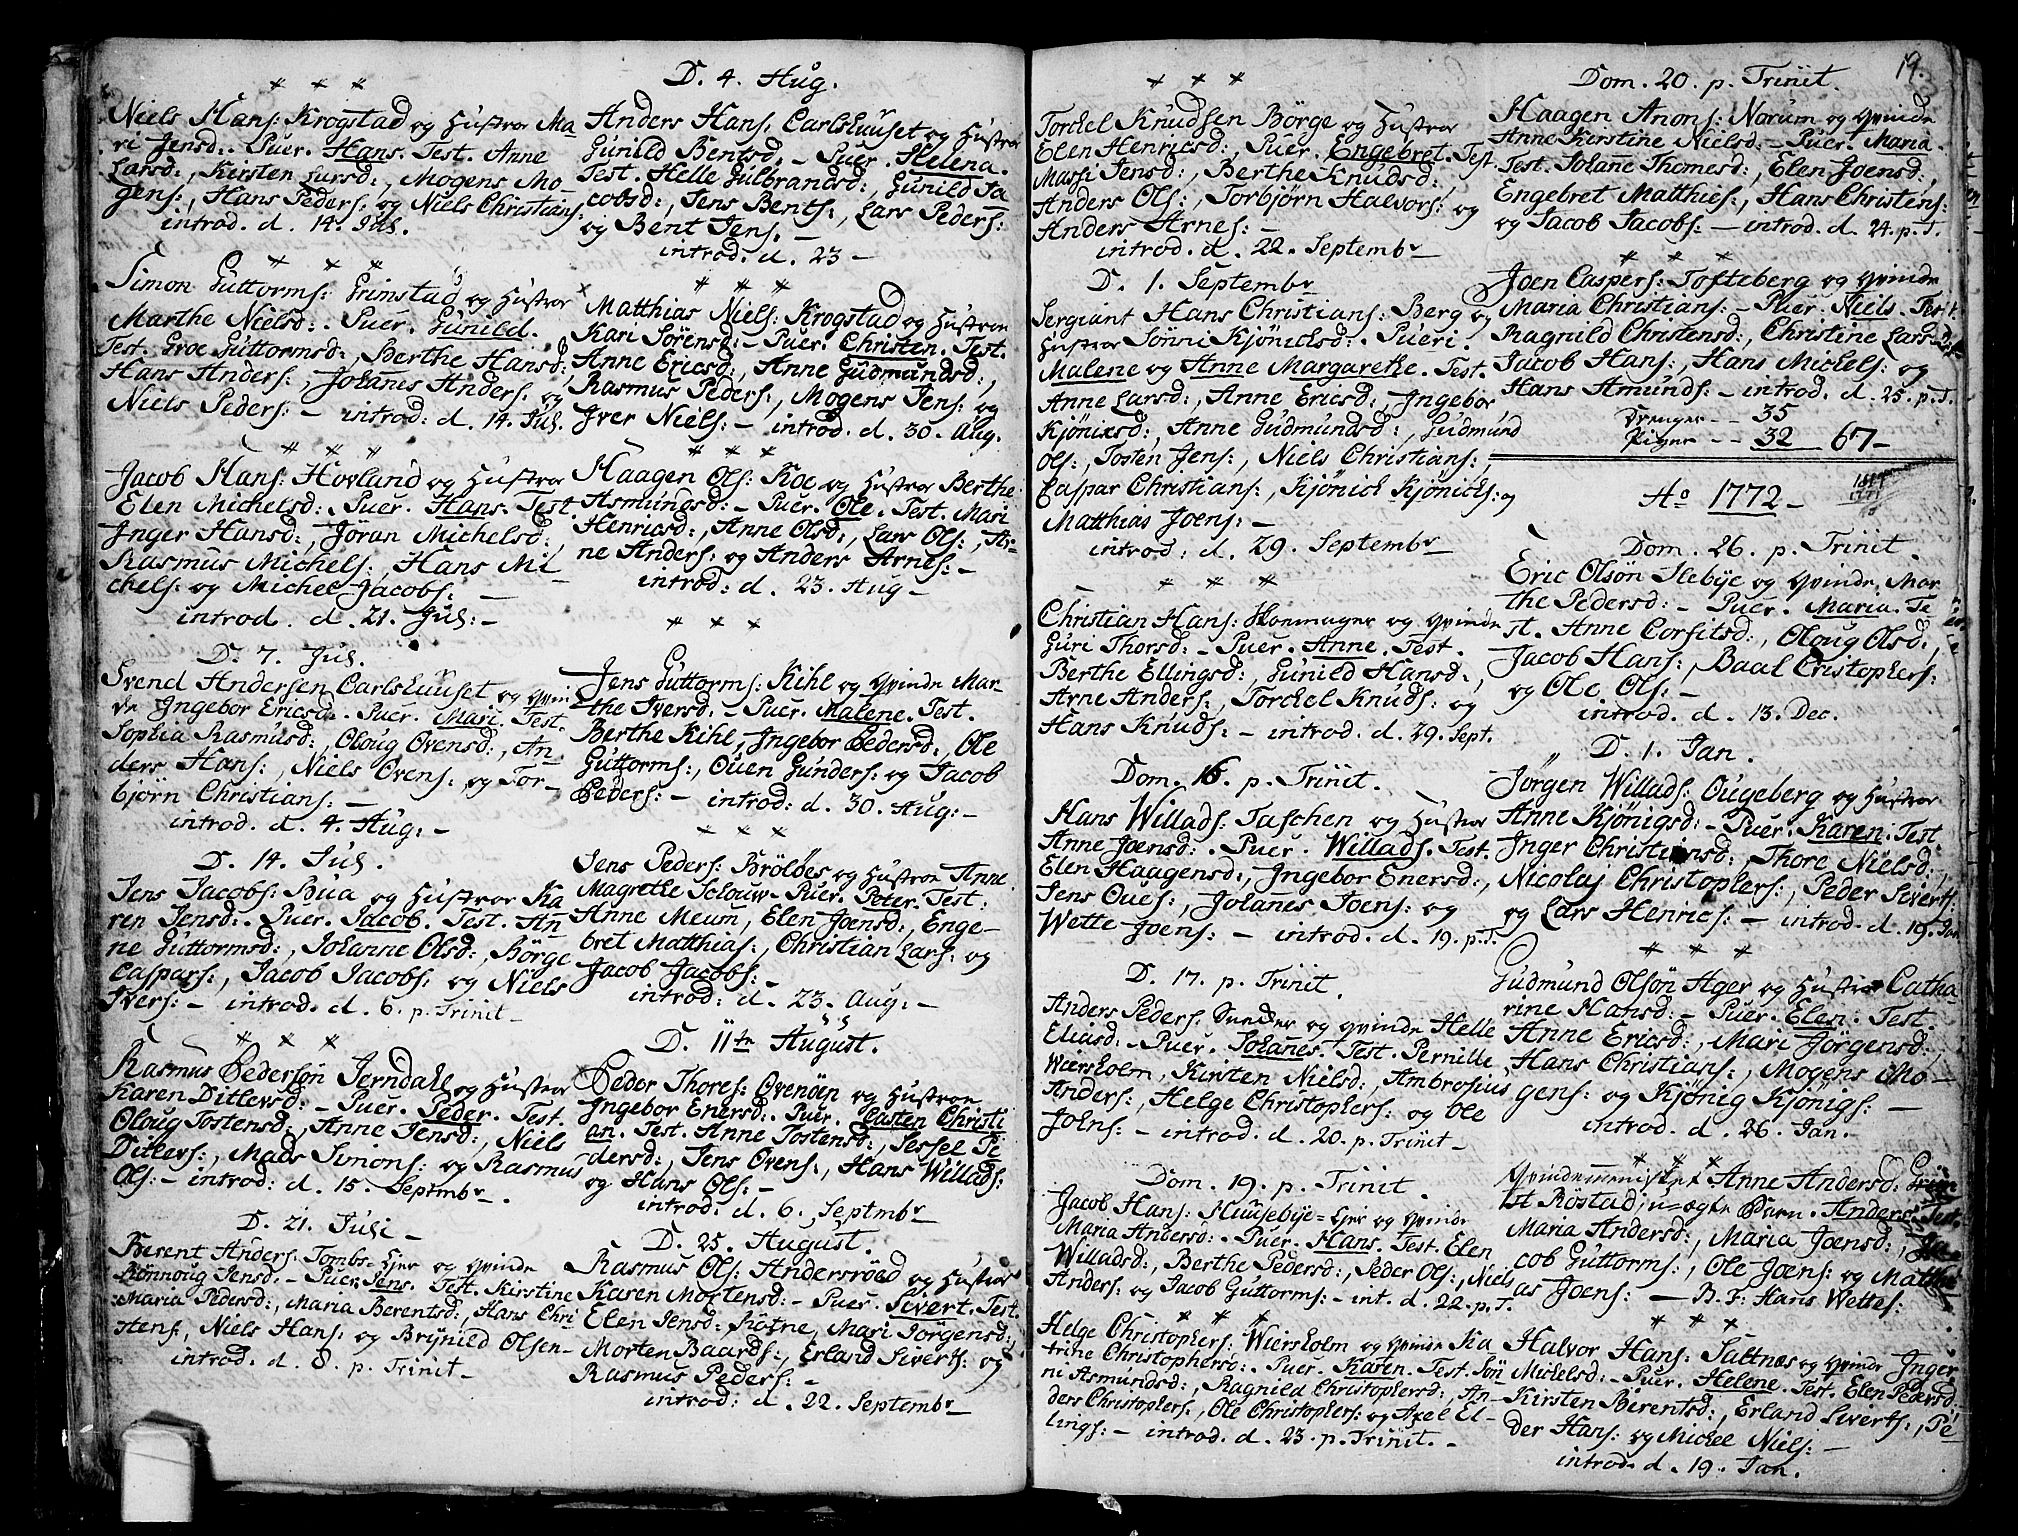 * * *
Niels Hans: Krogstad og Hustroe Ma-
ri Jensd:. Puer. Hans. Test. Anne
Larsd:, Kirsten Larsd:, Mogens Mo-
gens:, Hans Peders: og Niels Christians:
introd. d. 14. Jul.
* * *
Simon Guttorms: Grimstad og Hustroe
Marthe Nielsd:. Puer. Gunild.
Test. Groe Guttormsd:, Berthe Hansd:,
Hans Anders:, Johanes Anders: og
Niels Peders: – introd: d. 14. Jul.
* * *
Jacob Hans: Hovland og Hustroe
Elen Michelsd:. Puer. Hans. Test.
Inger Hansd:, Jöran Michelsd:,
Rasmus Michels:, Hans Mi-
chels: og Michel Jacobs: –
introd. d. 21. Jul: –
D. 7. Jul.
Svend Andersen Carlshuuset og Qvin-
de Ingebor Ericsd:. Puer. Mari. Test.
Sophia Rasmusd:, Oloug Ovensd:, An-
ders Hans:, Niels Ovens:, og Tor-
björn Christians: –
introd. d. 4. Aug: –
D. 14. Jul.
Jens Jacobs: Bua og Hustroe Ka-
ren Jensd:. Puer. Jacob. Test. An-
ne Guttormsd:, Johanne Olsd:, Börge
Caspars:, Jacob Jacobs: og Niels
Ivers: – introd. d. 6. p. Trinit –
* * *
Rasmus Pedersön Jerndahl og Hustroe
Karen Ditlevsd: – Puer. Peder. Test.
Oloug Tostensd:, Anne Jensd:, Niels
Ditlevs:, Mads Simons: og Rasmus
Ols: – introd: d. 15. Septmbr.
D. 21. Juli –
Berent Anders: Tombs-Eyer og Qvinde
Rönnoug Jensd: – Puer. Jens. Test. Kirstine
Maria Pedersd:, Maria Berentsd:, Hans Chri-
stens:, Niels Hans: og Brynild Olsen –
introd. d. 8. p. Trinit –
D. 4. Aug.
Anders Hans: Carlshuuset og Hustroe
Gunild Bentsd: – Puer. Helena.
Test. Helle Gulbrandsd:, Gunild Ja-
cobsd:, Jens Bents:, Lars Peders:
og Bent Jens: –
introd: d. 23 –
* * *
Matthias Niels: Krogstad og Hustroe
Kari Sörensd: – Puer. Christen. Test.
Anne Ericsd:, Anne Gudmundsd:,
Rasmus Peders:, Mogens Jens: og
Iver Niels: – introd. d. 30. Aug.
* * *
Haagen Ols: Roe og Hustroe Berthe
Asmundsd: – Puer. Ole. Test. Mari
Henricsd:, Anne Olsd:, Lars Ols:, Ar-
ne Anders: og Anders Arnes: –
introd: d. 23. Aug –
* * *
Jens Guttorms: Kihl og Qvinde Mar-
the Iversd: – Puer. Malene. Test.
Berthe Kihl, Ingebor Pedersd:, Ole
Guttorms:, Ouen Gunders: og Jacob
Peders: – introd: d. 30. Aug: –
* * *
Jens Peders: Brölöes og Hustroe Anne
Magrethe Schouw – Puer. Peter. Test.
Anne Meum, Elen Joensd:, Enge-
bret Matthias:, Christian Lars: og
Jacob Jacobs: –
introd: d. 23. Aug: –
D. 11te August.
Peder Thores: Ovenöen og Hustroe
Ingebor Enersd:. Puer. Casten Christi-
an. Test. Anne Tostensd:, Sessel Pe-
dersd:, Jens Ovens:, Hans Willads:
og Hans Ols: –
introd: d. 6. Septmbr
D. 25. August.
Rasmus Ols: Andersröed og Hustroe
Karen Mortensd: – Puer. Sivert. Test.
Elen Jensd:, Mari Jörgensd:,
Morten Baards:, Erland Siverts: og
Rasmus Peders: –
introd: d. 22. Septembr
19.
* * *
Torckel Knudsen Börge og Hustroe
Elen Henricsd:, Puer. Engebret. Test.
Massi Jensd:, Berthe Knudsd:,
Anders Ols:, Torbjörn Halvors: og
Anders Arnes: –
introd: d. 22. Septembr
D. 1. Septembr
Sergiant Hans Christians: Berg og
Hustroe Sönni Kjönicksd: – Pueri.
Malene og Anne Margarethe. Test.
Anne Larsd:, Anne Ericsd:, Ingebor
Kjönixsd:, Anne Gudmundsd:, Gudmund
Ols:, Tosten Jens:, Niels Christians:,
Caspar Christians:, Kjönick Kjönicks: og
Matthias Joens: –
introd: d. 29. Septembr
* * *
Christian Hans: og Qvinde
Guri Thorsd: – Puer. Anne. Test.
Berthe Ellingsd:, Gunild Hansd:,
Arne Anders:, Torckel Knuds: og
Hans Knuds: – introd. d. 29. Sept.
Dom. 16. p. Triniit.
Hans Willads: Taschen og Hustroe
Anne Joensd:. Puer. Willads. Test.
Elen Haagensd:, Ingebor Enersd:,
Jens Oues:, Johanes Joens: og
Wette Joens: – introd. d. 19. p. T.
D. 17. p. Trinit.
Anders Peders: Sundby og Qvinde Helle
Eliasd: – Puer. Johannes. Test. Pernille
Wiersholm, Kirsten Nielsd:, Ambrosius
Anders:, Helge Christophers: og Ole
Johns: – introd. d. 20. p. Triniit –
Dom. 19. p. Trinit.
Jacob Hans: Huusebye-Eyer og Qvinde
Maria Andersd:. Puer. Hans. Test. Elen
Willadsd:, Berthe Pedersd:, Peder Ols:, Niels
Anders: og Jacob Guttorms: – int. d. 22. p. T.
* * *
Helge Christophers: Wiersholm og Qvinde Ka-
trine Christophersd:. Puer. Karen. Test. Sön-
ni Asmundsd:, Ragnild Christophersd:, An-
ders Christophers:, Ole Christophers: og Axel El-
lings: – introd. d. 23. p. Triniit. –
Dom. 20. p. Triniit.
Haagen Anons: Norum og Qvinde
Anne Kirstine Nielsd: – Puer. Maria.
Test. Johane Thomesd:, Elen Joensd:,
Engebret Matthies:, Hans Christens:
og Jacob Jacobs: – introd. d. 24. p. T.
* * *
Joen Caspers: Tofteberg og Qvinde
Maria Christians: – Puer. Niels. Test.
Ragnild Christensd:, Christine Larsd:,
Jacob Hans:, Hans Michels: og
Hans Amunds: – introd. d. 25. p. T.
Drenger – – 35
Piger – – 32 67 –
Ao 1772 –
Dom. 26. p. Trinit.
Eric Olsön Ilebye og Qvinde Mar-
the Pedersd: – Puer. Maria. Te-
st. Anne Corfitsd:, Oloug Olsd:,
Jacob Hans:, Baal Cristophers:
og Ole Ols: –
introd. d. 13. Dec.
D. 1. Jan.
Jörgen Willads: Ougeberg og Hustroe
Anne Kjönigsd: – Puer. Karen. Test.
Inger Christensd:, Thore Nielsd:,
Nicolaj Christophers:, Peder Siverts:
og Lars Henrics: – introd. d. 19. Jan
* * *
Gudmund Olsön Ager og Hustroe Catha-
rine Hansd: – Puer. Elen. Test.
Anne Ericsd:, Mari Jörgensd:,
Hans Christians:, Mogens Mo-
gens: og Kjönig Kjönigs: –
introd. d. 26. Jan. –
* * *
Qvindemenisket Anne Andersd:
Röstad, u-ægte Barn. Anders. Test.
Maria Andersd:, Maria Joensd:, Ja-
cob Guttorms:, Ole Joens: og Matthi-
as Joens: – B. F: Hans Wettes:
* * *
Halvor Hans: Saltnæs og Qvinde Inger
Michelsd: – Puer. Helene. Test. Elen Pedersd:
Kirsten Berentsd:, Erland Siverts:, Pe-
der Hans: og Michel Niels: –
introd. d. 19. Jan.